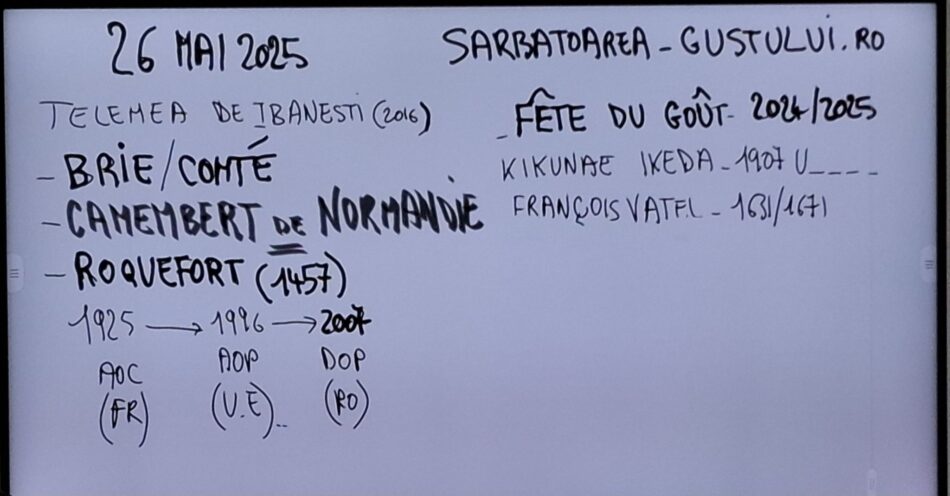 26 MAI 2025
TELEMEA DE IBANESTI (2016)
- BRIE/COMTÉ
- CAMEMBERT DE NORMANDIE
- ROQUEFORT (1457)
1925 → 1996 → 2007
AOC AOP DOP
(FR) (U.E).. (RO)
SARBATOAREA-GUSTULUI.RO
- FÊTE DU GOÛT- 2024/2025
KIKUNAE IKEDA - 1907 U____
FRANÇOIS VATEL - 1631/1671